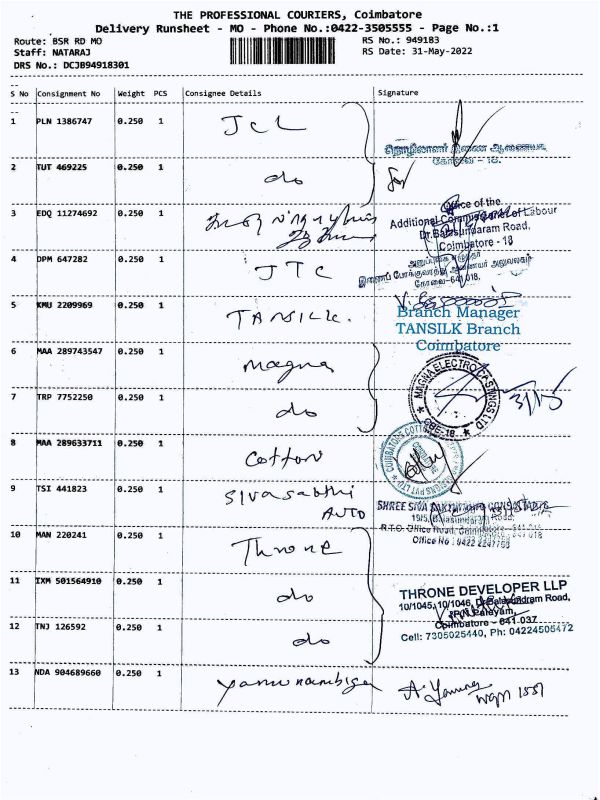 THE PROFESSIONAL COURIERS, Coimbatore
Delivery Runsheet - MO - Phone No.:0422-3505555 - Page No.:1
Route: BSR RD MO
Staff: NATARAJ
DRS No.: DCJB94918301
RS No.: 949183
RS Date: 31-May-2022
S No Consignment No Weight PCS Consignee Details Signature
1 PLN 1386747 0.250 1 JCL
தொழிலாளர் இணை ஆணையர்
கோவை - 18.
2 TUT 469225 0.250 1 do for
3 EDQ 11274692 0.250 1
Office of the
Additional Commissioner of Labour
Dr.Balasundaram Road,
Coimbatore - 18
4 DPM 647282 0.250 1 JTC
இணைப் போக்குவரத்து ஆணையர் அலுவலகம்
கோவை-641 018.
5 KMU 2209969 0.250 1 TANSILK.
Branch Manager
TANSILK Branch
Coimbatore
6 MAA 289743547 0.250 1 Magna
MAGNA ELECTRO CASTINGS LTD
CBE-18
7 TRP 7752250 0.250 1 do 31/5
8 MAA 289633711 0.250 1 Cotton
9 TSI 441823 0.250 1 Sivasakthi
AUTO
SHREE SIVA SAKTHI AUTO CONSULTANTS
19/5, Balasundaram Road,
R.T.O. Office Road, Coimbatore - 641 018
Office No : 0422 2247760
10 MAN 220241 0.250 1 Throne
11 IXM 501564910 0.250 1 do
THRONE DEVELOPER LLP
10/1045, 10/1046, Dr.Balasundram Road,
P.N.Palayam,
Coimbatore - 641 037
Cell: 7305025440, Ph: 04224506472
12 TNJ 126592 0.250 1 do
13 NDA 904689660 0.250 1 yamunambiga